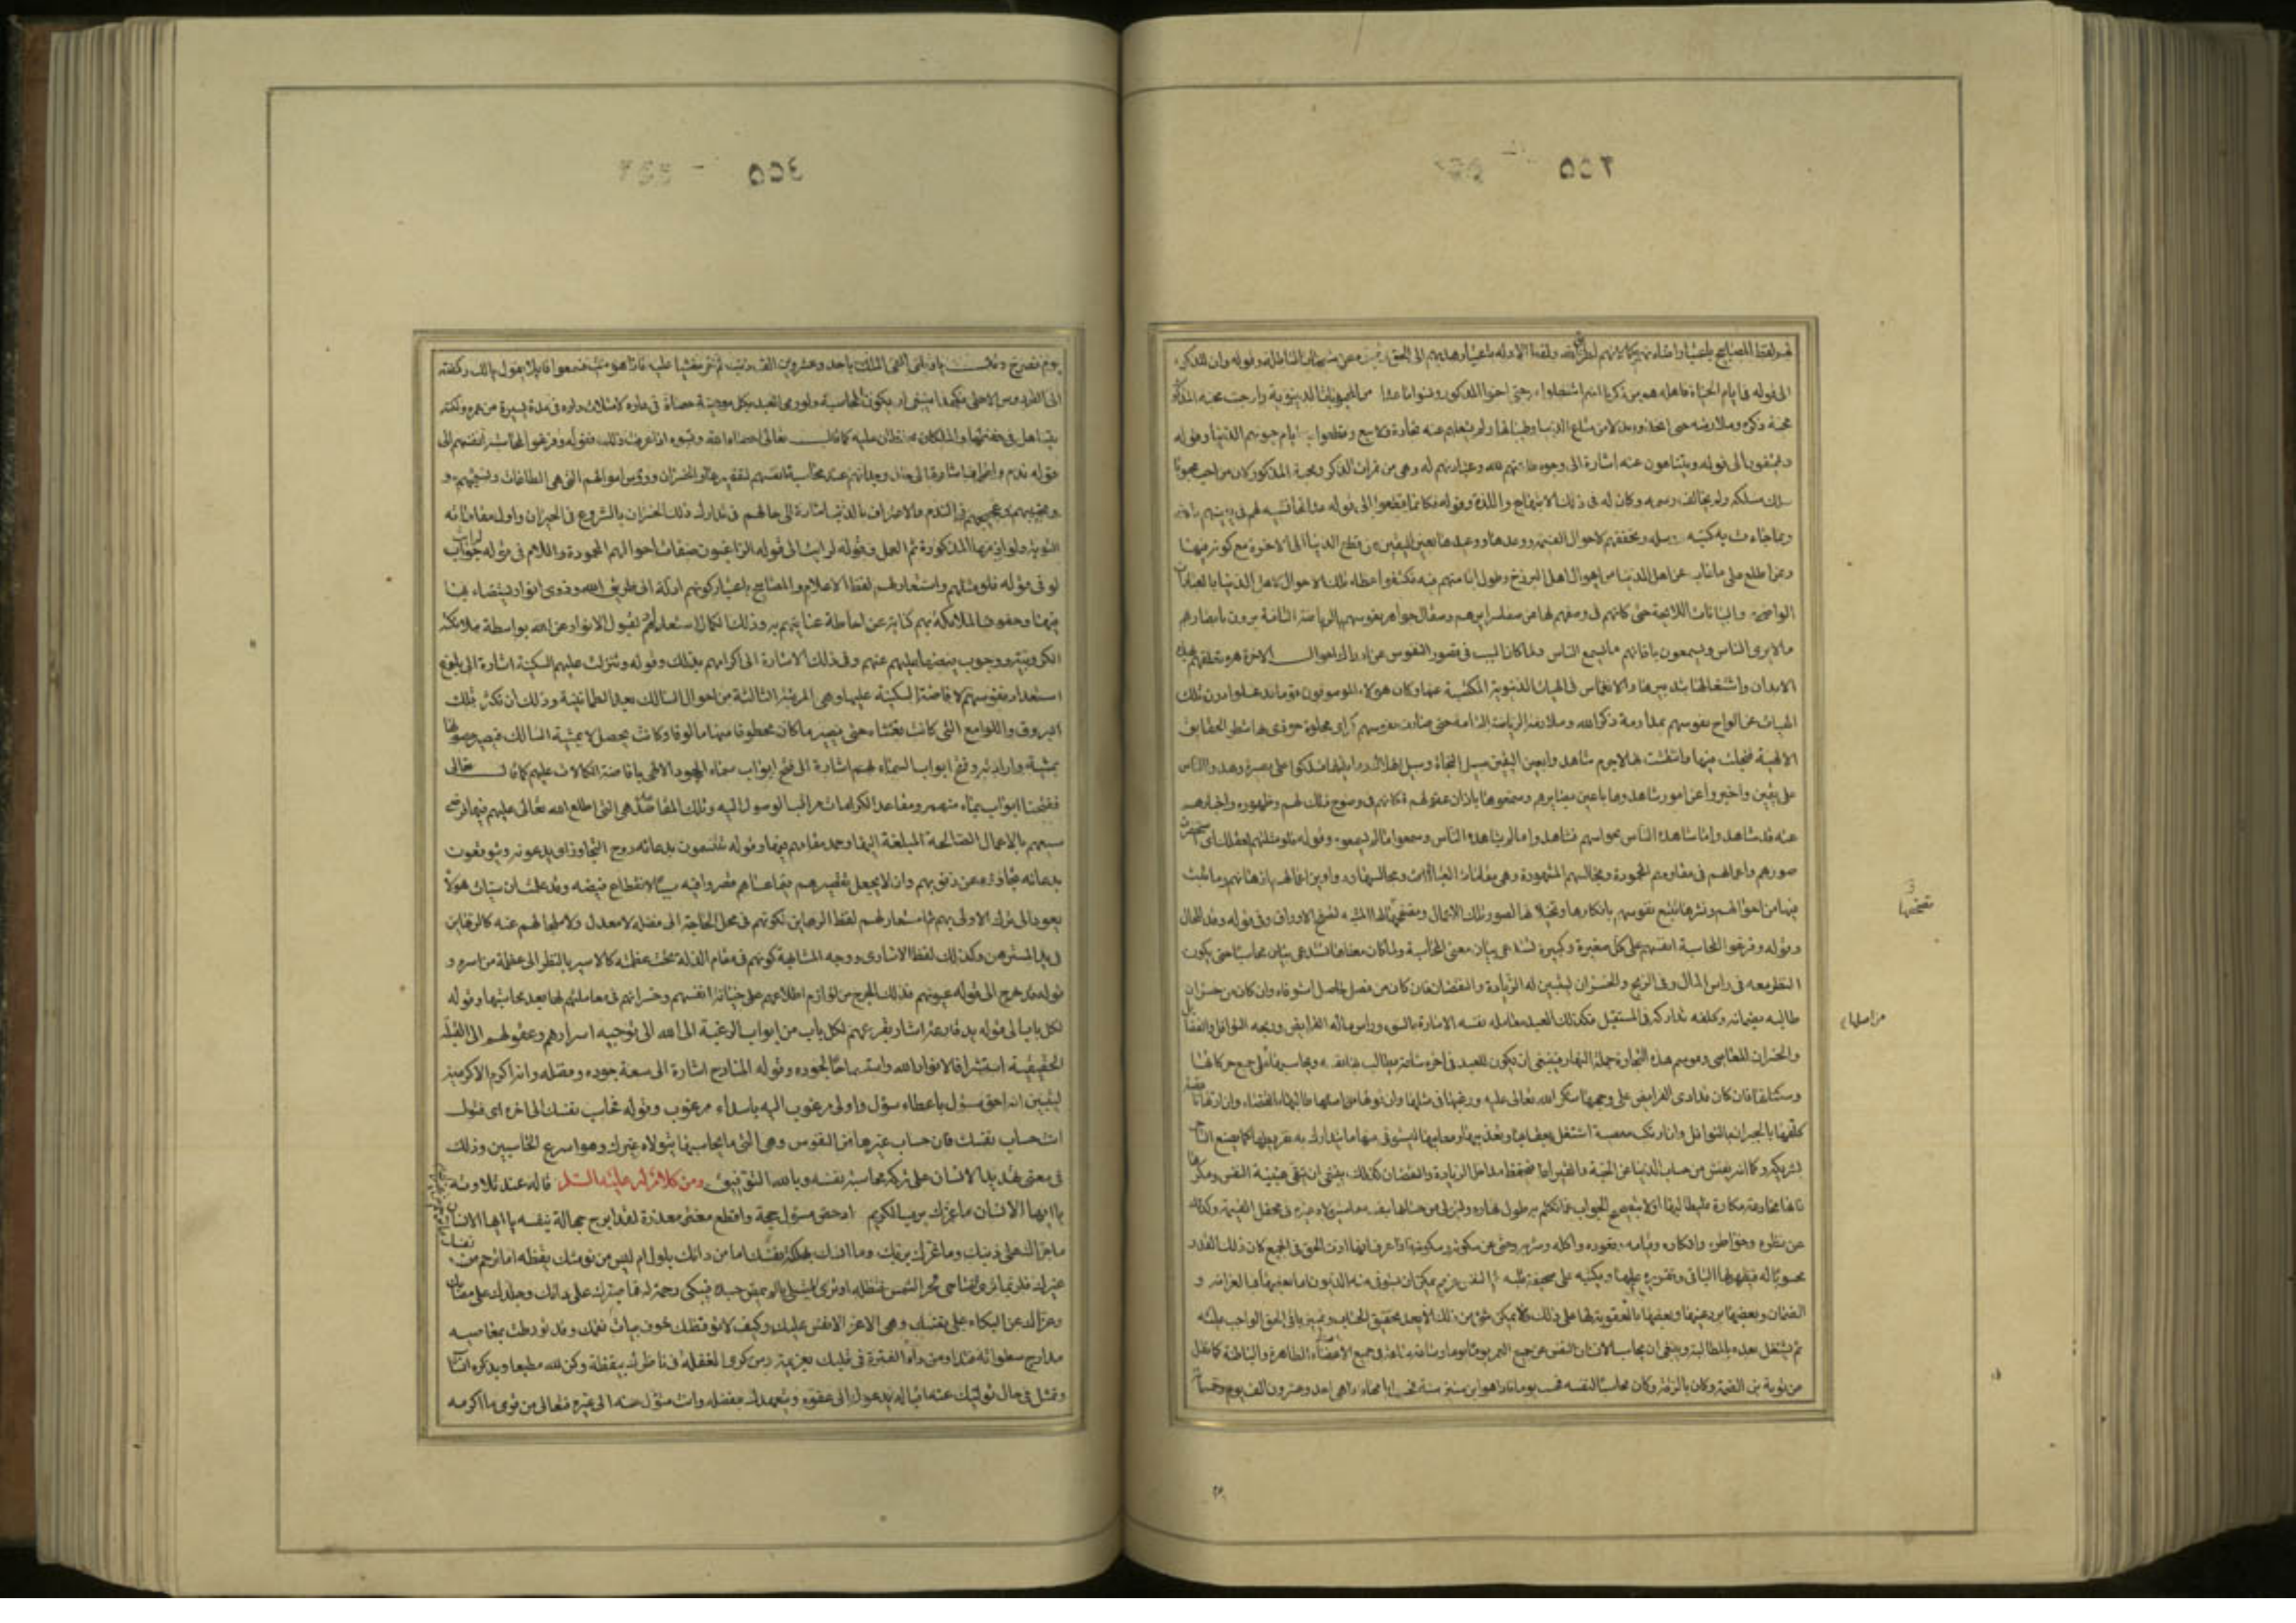 الى قوله في ايام الحياة
محبة ذكره وملازمته حتى اتخذوه بدلا من متاع الدنيا وطيباتها ولم يشغلهم عنه تجارة ولا بيع وقطعوا به ايام حيوتهم الدنيا وقوله
ويهتفون الى قوله ويتناهون عنه اشارة الى وجوه طاعتهم لله وعبادتهم له وهي من ثمرات الذكر ومحبة المذكور لان من احب محبوبا
سلك مسلكه ولم يخالف رسمه وكان له في ذلك الابتهاج واللذة وقوله فكانما قطعوا الى قوله
وبما جاءت به كتبه ورسله وتحققهم لاحوال القيمة ووعدها ووعيدها بعين اليقين من قطع الدنيا الى الاخرة مع كونهم فيها
وممن اطلع على ما غاب عن اهل الدنيا من اهوال اهل البرزخ وطول اقامتهم فيه فكشفوا غطاء تلك الاحوال لاهل الدنيا بالعبارات
الواضحة والبيانات اللائحة حتى كانهم في وصفهم لها عن صفاء سرايرهم وصقال جواهر نفوسهم بالرياضة التامة يرون بابصارهم
ما لا يرى الناس ويسمعون باذانهم ما لا يسمع الناس ولما كان السبب في قصور النفوس عن ادراك احوال الاخرة هو تعلقها بهذه
الابدان واشتغالها بتدبيرها والانغماس في الهيات الدنيوية المكتسبة عنها وكان هولاء الموصوفون قوما قد غسلوا درن تلك
الهيات عن الواح نفوسهم بمداومة ذكر الله وملازمة الرياضة التامة حتى صارت نفوسهم كمرايا مجلوة حوذى بها شطر الحقايق
الالهية فتجلت فيها وانتقشت بها لا جرم شاهدوا بعين اليقين سبيل النجاة وسبيل الهلاك وما بينهما فسلكوا على بصيرة وهدوا الناس
على يقين واخبروا عن امور شاهدوها باعين بصايرهم وسمعوها باذان عقولهم فكانهم في وضوح ذلك لهم وظهوره واخبارهم
عنه قد شاهدوا ما شاهده الناس بحواسهم فشاهدوا ما لم يشاهده الناس وسمعوا ما لم يسمعوه وقوله فلو مثلتهم لعقلك اى استحضرت
صورهم واعمالهم في مقاومهم المحمودة ومجالسهم المشهودة وهي مقامات العبادات ومجالسها ودواوين اعمالهم اذهانهم وما ثبت
فيها من افعالهم ونشرها تتبع نفوسهم بافكارها
وقوله وفرغوا لمحاسبة انفسهم على كل صغيرة وكبيرة
النظر معه في راس المال وفي الربح والخسران ليتبين له الزيادة والنقصان فان كان من فضل حاصل استوفاه وان كان من خسران
طالبه بضمانه وكلفه تداركه في المستقبل فكذلك العبد معامله نفسه الامارة بالسوء وراس ماله الفرايض وربحه النوافل والفضايل
والخسران المعاصي وموسم هذه التجارة جملة النهار فينبغي ان يكون للعبد في اخره ساعة يطالب بها نفسه ويحاسبها على جميع حركاتها
وسكناتها فان كان قد ادى الفرايض على وجهها شكر الله تعالى عليه ورغبها في مثلها وان فوتها من اصلها طالبها بالقضاء وان ادتها ناقصة
كلفها بالجبران بالنوافل وان ارتكب معصية اشتغل بعقابها وتعذيبها ومعاتبتها ليستوفى منها ما يتدارك به تفريطها كما يصنع التاجر
بشريكه وكما انه يفتش من حساب الدنيا عن الحبة والقيراط فيحفظ مداخل الزيادة والنقصان كذلك ينبغي ان يتقى غبينة النفس ومكرها
فانها خداعة مكارة فليطالبها اولا بتصحيح الجواب عما تكلم به طول نهاره وليتولى من حسابها بنفسه ما سيتولاه غيره في محفل القيمة وكذلك
عن نظره وخواطره وافكاره وقيامه وقعوده واكله وشربه وحتى عن سكوته وسكونه فاذا عرف انها ادت الحق في الجميع كان ذلك القدر
محسوبا له فيظهر لها الباقي ويقرره عليها ويكتبه على صحيفة قلبه ثم النفس غريم يمكن ان يستوفى منه الديون اما بعضها فبالغرامة و
الضمان وبعضها برد عينها وبعضها بالعقوبة لها على ذلك ولا يمكن شئ من ذلك الا بعد تحقيق الحساب وتمييز باقي الحق الواجب عليه
ثم يشتغل بعده بالمطالبة وينبغي ان يحاسب الانسان النفس عن جميع العمر يوما يوما وساعة ساعة في جميع الاعضاء الظاهرة والباطنة كما نقل
عن توبة بن الصمة وكان بالرقة وكان محاسبا لنفسه فحسب يوما فاذا هو ابن ستين سنة فحسب ايامها فاذا هي احد وعشرون الف يوم وخمسمائة
من اصلها
يوم فصرخ وقال يا ويلتى القى الملك باحد وعشرين الف ذنب ثم خر مغشيا عليه فاذا هو ميت فسمعوا قائلا يقول يا لك ركضة
الى الفردوس الاعلى فهكذا ينبغي ان يكون المحاسبة ولو رمى العبد بكل معصية حصاة في داره لامتلات داره في مدة يسيرة من عمره ولكنه
يتساهل في حفظها والملكان يحفظان عليه كما قال تعالى احصاه الله ونسوه اذا عرفت ذلك فقوله وفرغوا لمحاسبة انفسهم الى
قوله ندم واعتراف اشارة الى حال وجدانهم عند محاسبة انفسهم
ونحيبهم وعجيجهم في الندم والاعتراف بالذنب اشارة الى حالهم في تدارك ذلك الخسران بالشروع في الجبران واول مقاماته
التوبة ولوازمها المذكورة ثم العمل وقوله لرايت الى قوله الراغبون صفات احوالهم المحمودة واللام في قوله لرايت جواب
لو في قوله فلو مثلتهم واستعار لهم لفظ الاعلام والمصابيح باعتبار كونهم ادلة الى طريق الله وذوى انوار يستضاء بها
فيها وحفوف الملائكة بهم كناية عن احاطة عنايتهم بهم وذلك لكمال استعدادهم لقبول الانوار عن الله بواسطة ملائكة
الكروبية ووجوب فيضها عليهم عنهم وفي ذلك الاشارة الى اكرامهم بذلك وقوله وتنزلت عليهم السكينة اشارة الى بلوغ
استعداد نفوسهم لافاضة السكينة عليها وهي المرتبة الثالثة من احوال السالك بعد الطمانينة وذلك ان تكثر تلك
البروق واللوامع التي كانت تغشاه حتى يصير ما كان مخطوفا منها مالوفا وكانت يحصل لا بمشية السالك فيصير حصولها
بمشيته وارادته وفتح ابواب السماء لهم اشارة الى فتح ابواب سماء الجود الالهي بافاضة الكمالات عليهم كما قال تعالى
ففتحنا ابواب السماء بماء منهمر ومقاعد الكرامات مراتب الوصول اليه وتلك المقاعد هي التي اطلع الله تعالى عليهم فيها فرضى
سعيهم بالاعمال الصالحة المبلغة اليها وحمد مقامهم فيها وقوله يتنسمون بدعائه روح التجاوز اى يدعونه ويتوقعون
بدعائه تجاوزه عن ذنوبهم وان لا يجعل تقصيرهم فيما عساهم قصروا فيه سببا لانقطاع فيضه وقد علمت ان سيئات هولاء
يعود الى ترك الاولى بهم ثم استعار لهم لفظ الرهاين لكونهم في محل الحاجة الى فضله لا معدل ولا ملجا لهم عنه كالرهاين
في يد المسترهن وكذلك لفظ الاسارى ووجه المشابهة كونهم في مقام الذلة تحت عظمته كالاسير بالنظر الى عظمة من اسره و
قوله جرح الى قوله عيونهم فذلك الجرح من لوازم اطلاعهم على خيانة انفسهم وخسرانهم في معاملتهم لها بعد محاسبتها وقوله
لكل باب الى قوله يد قارعة اشارة بقرعهم لكل باب من ابواب الرغبة الى الله الى توجيه اسرارهم وعقولهم الى القبلة
الحقيقية استشراقا لانوار الله واستسماحا لجوده وقوله المنادح اشارة الى سعة جوده وفضله وانه اكرم الاكرمين
ليتبين انه احق مسؤل باعطاء سؤل واولى مرغوب اليه باسداء مرغوب وقوله فحاسب نفسك الى اخره اى فتول
انت حساب نفسك فان حساب غيرها من النفوس وهي التي لم يحاسبها يتولاه غيرك وهو اسرع الحاسبين وذلك
في معنى تهديد الانسان على تركه محاسبة نفسه وبالله التوفيق ومن كلام له عليه السلم قاله عند تلاوته
يا ايها الانسان ما غرك بربك الكريم ادحض مسؤل حجة واقطع مغتر معذرة لقد ابرح جهالة بنفسه يا ايها الانسان
ما جراك على ذنبك وما غرك بربك وما انسك بهلكة نفسك اما من دائك بلول ام ليس من نومتك يقظة اما ترحم من نفسك
غيرك فلربما ترى الضاحي لحر الشمس فتظله او ترى المبتلى بالم يمض جسده فتبكى رحمة له فما صبرك على دائك وجلدك على مصابك
وعزاك عن البكاء على نفسك وهي اعز الانفس عليك وكيف لا يوقظك خوف بيات نقمة وقد تورطت بمعاصيه
مدارج سطواته فتداو من داء الفترة في قلبك بعزيمة ومن كرى الغفلة في ناظرك بيقظة وكن لله مطيعا وبذكره انسا
وتمثل في حال توليك عنه اقباله يدعوك الى عفوه ويتغمدك بفضله وانت متول عنه الى غيره فتعالى من قوى ما اكرمه